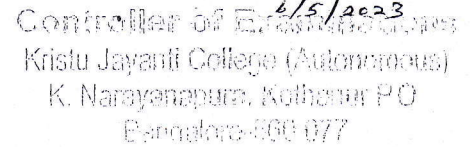 6/5/2023
Controller of Examinations
Kristu Jayanti College (Autonomous)
K. Narayanapura, Kothanur P O
Bangalore-560 077